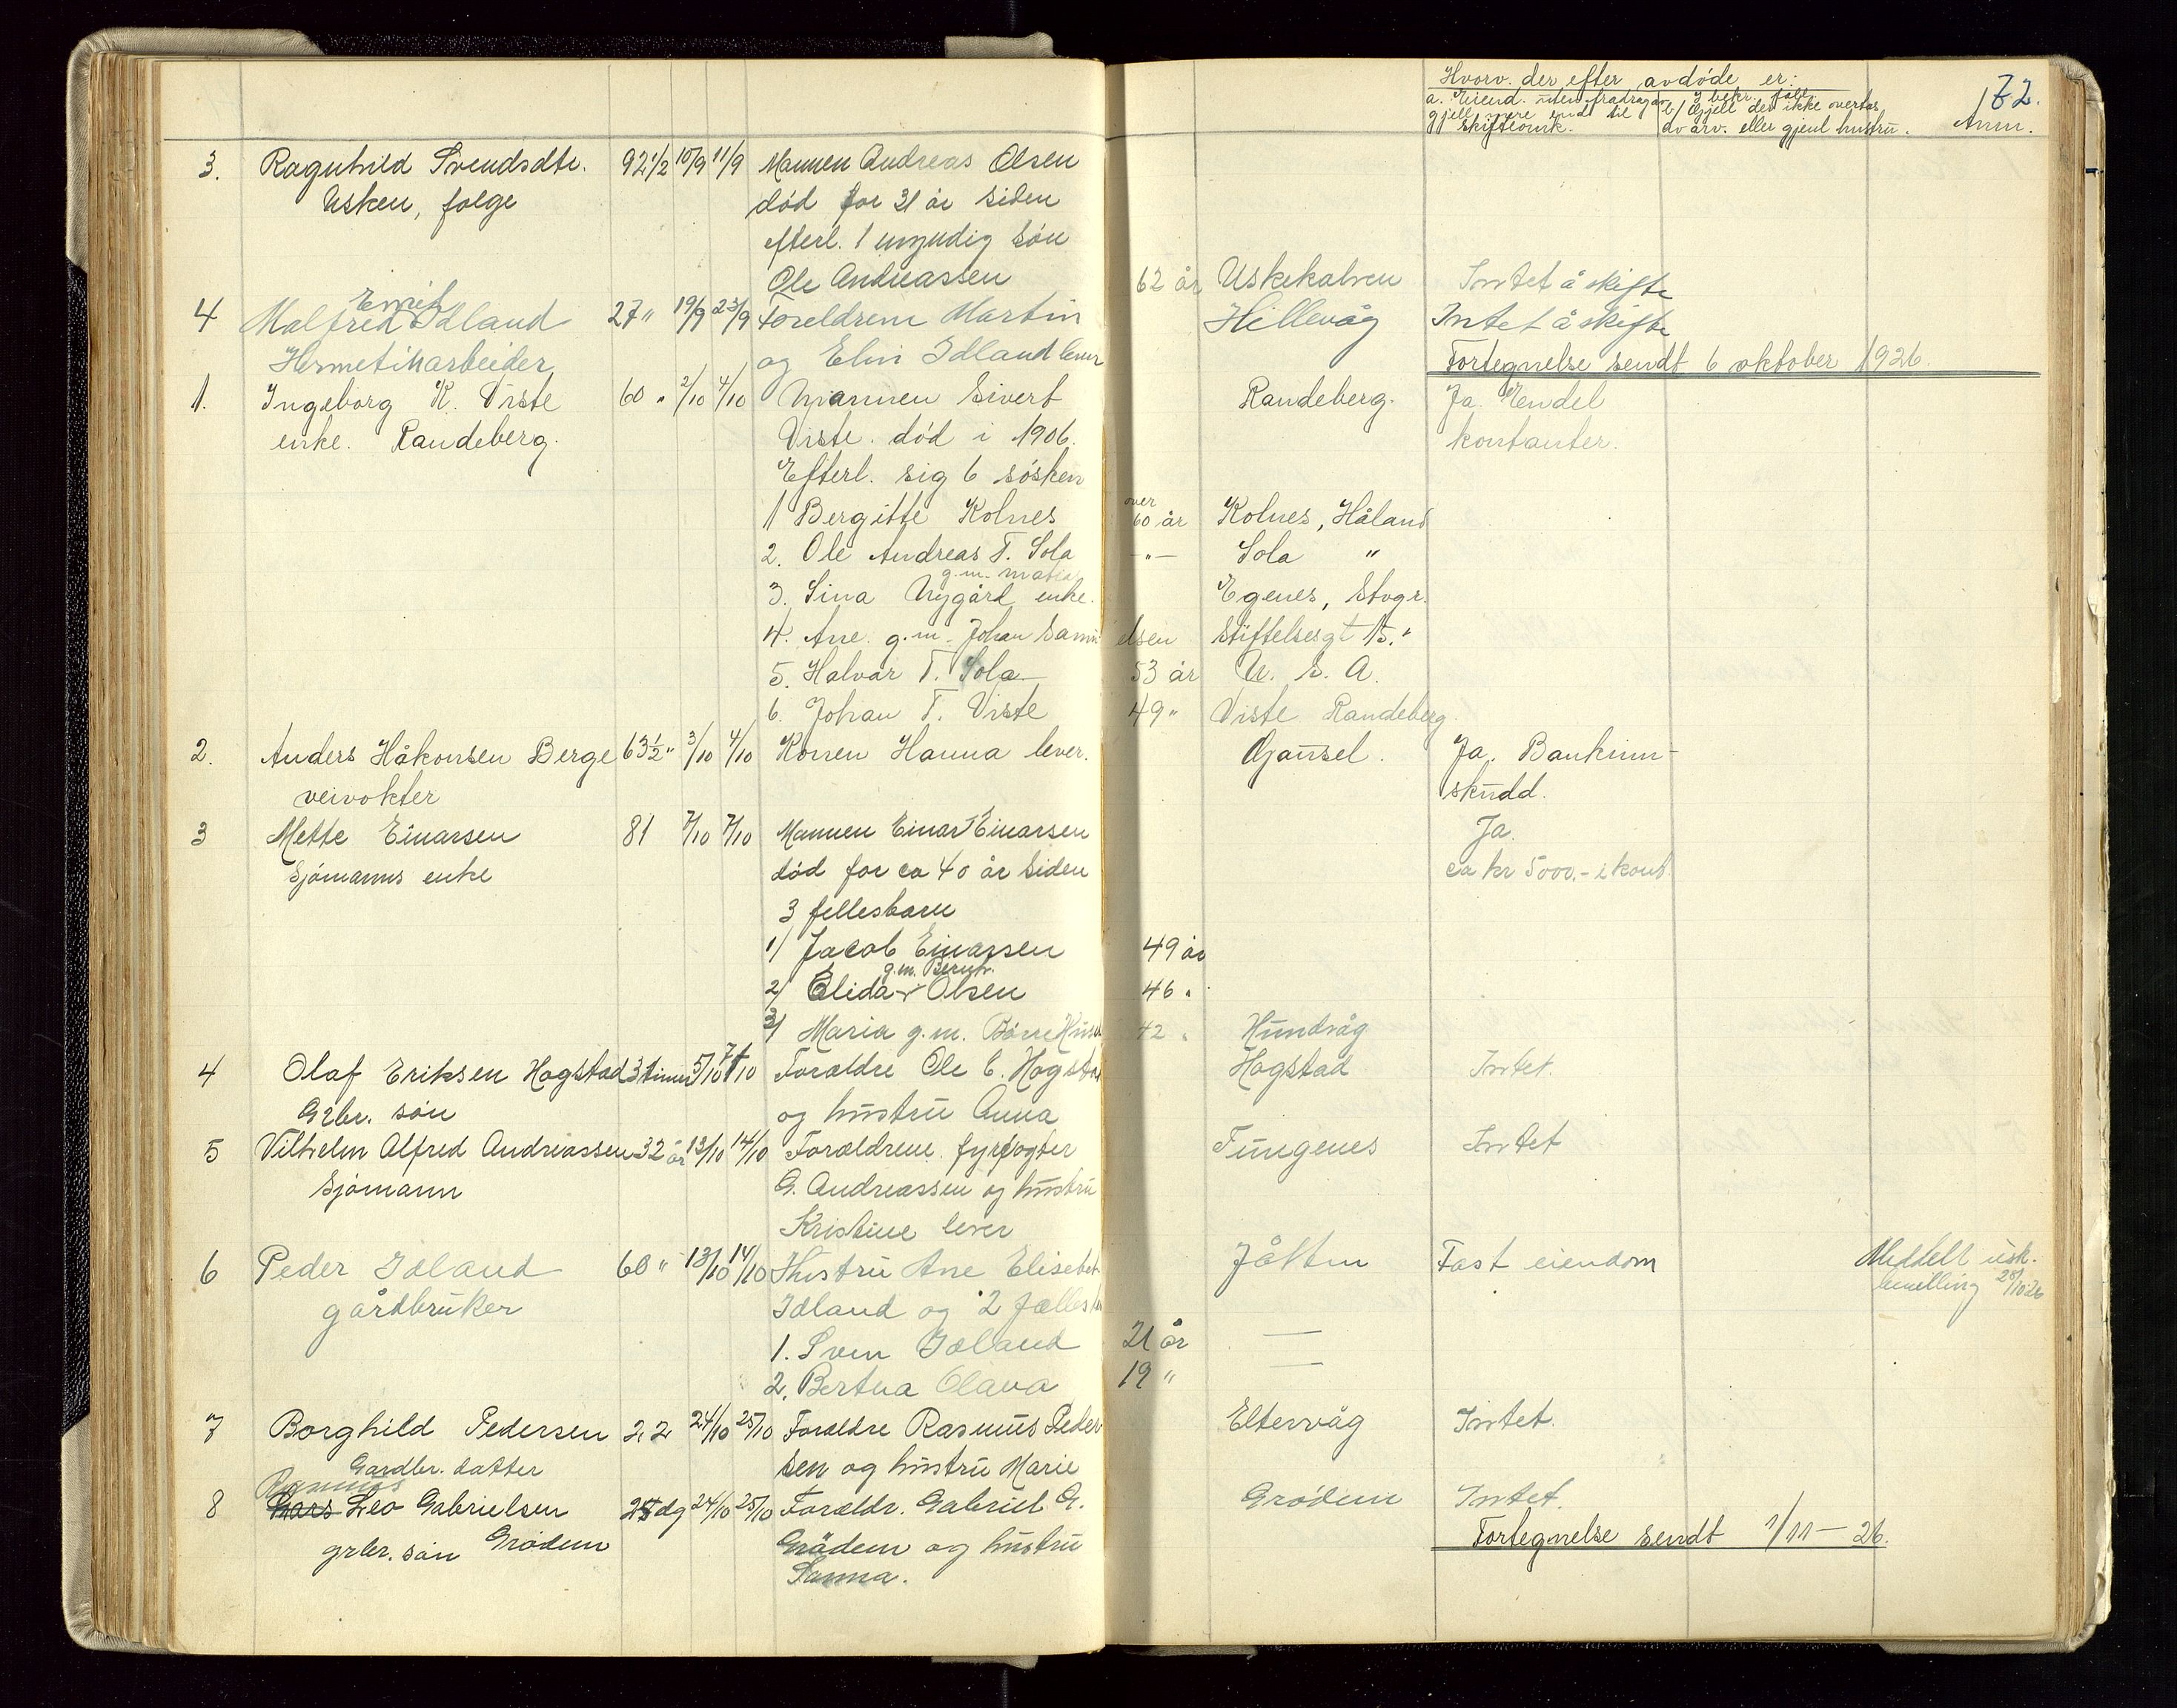 Hvorv. der efter avdöde er:
a. Eiend. uten fradrag av gjell mere end til skifteomk.
b/ Gjell der ikke overtas av arv. eller gjenl hustru.
172.
Anm.
3. Ragnhild Svendsdtr. 92 1/2 10/9 11/9 Mannen Andreas Olsen
Usken, folge død for 31 år siden
efterl. 1 umyndig søn
Ole Andreassen 62 år Uskekalven Intet å skifte
Emil
4 Malfred Idland 27 " 19/9 23/9 Foreldrene Martin Hillevåg Intet å skifte
Hermetikarbeider og Elin Idland lever Fortegnelse sendt 6 oktober 1926.
1. Ingeborg K. Viste 60 " 2/10 4/10 Mannen Sivert Randeberg. Ja. Endel
enke. Randeberg. Viste. död i 1906. kontanter.
Efterl. sig 6 sösken
over
1 Bergitte Kolnes 60 år Kolnes, Håland
2. Ole Andreas T. Sola -"- Sola "
g.m.
3. Sina Nygård enke. Egenes, Stvgr.
4. Ane g.m. Johan Samuelsen Stiftelsesgt 15. "
5. Halvar T. Sola 53 år U. S. A.
6. Johan T. Viste 49 " Viste Randeberg.
2. Anders Håkonsen Berge 63 1/2 " 3/10 4/10 Konen Hanna lever. Gausel. Ja. Bankinn-
veivokter skudd.
3 Mette Einarsen 81 7/10 7/10 Mannen Einar Einarsen Ja.
Sjömanns enke död for ca 40 år siden ca kr 5000.- i kont.
3 fellesbarn
1/ Jacob Einarsen 49 år
g.m. Berntr.
2/ Elida Olsen 46 "
3/ Maria g.m. Börre 42 " Hundvåg
4 Olaf Eriksen Hogstad 3 timer 5/10 7/10 Foraldre Ole E. Hogstad Hogstad Intet.
Grbr. sön og hustru Anna
5 Vilhelm Alfred Andreassen 32 år 12/10 14/10 Foraldrene fyrvogter Tungenes Intet
Sjömann G. Andreassen og hustru
Kristine lever
6 Peder Idland 60 " 13/10 14/10 Hustru Ane Elisebet Jåtten Fast eiendom Meddelt usk.
gårdbruker Idland og 2 fælles bevilling 28/10 26
1. Sven Idland 21 år —
2. Bertha Olava 19 " —
7 Borghild Pedersen 22 24/10 25/10 Foraldre Rasmus Peder- Eltervåg Intet.
Gardbr. datter sen og hustru Marie
Rasmus
8 Lars Leo Gabrielsen dg 24/10 25/10 Foraldr. Gabriel G. Grödem Intet.
grbr. sön Grödem Grödem og hustru Fortegnelse sendt 1/11 — 26.
Sanna.